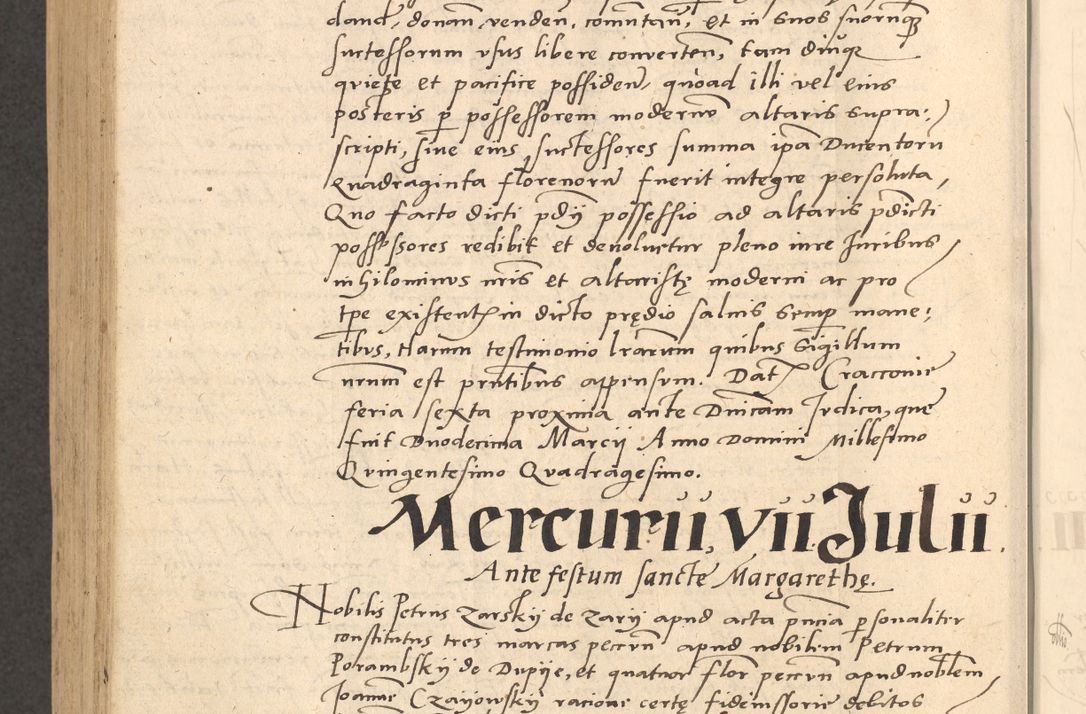 dand, donan, venden, comutan, et in suos suorumq
successorum usus libere converten, tam diuq
quiete et pacifice possiden, quoad illi vel eius
posteris p possessorem modernu altaris supra:
scripti, sive eius successores summa ipa Ducentoru
Quadraginta florenoru fuerit integre persoluta,
Quo facto dicti pdij possessio ad altaris pdicti
possessores redibit et devoluetur pleno iure Juribus
nihilominus nris et altaristę moderni ac pro
tpe existent in dicto prędio salvis semp mane:
tibus, Harum testimonio lrarum quibus Sigillum
nrum est pntibus appensum. Dat Cracconie
feria sexta proxima ante Dnicam Judica, que
fuit Duodecima Marcij Anno Domini Millesimo
Quingentesimo Quadragesimo.
Mercurii, vii Julii.
Ante festum sancte Margarethę.
Nobilis Petrus Zarskij de Zarij apud acta pncia psonaliter
constitutus tres marcas pecun apud nobilem Petrum
Porambskij de Dupije, et quatuor flor pecun apud noblem
Joanne Czayowskij racione certę fideiussorie debitos